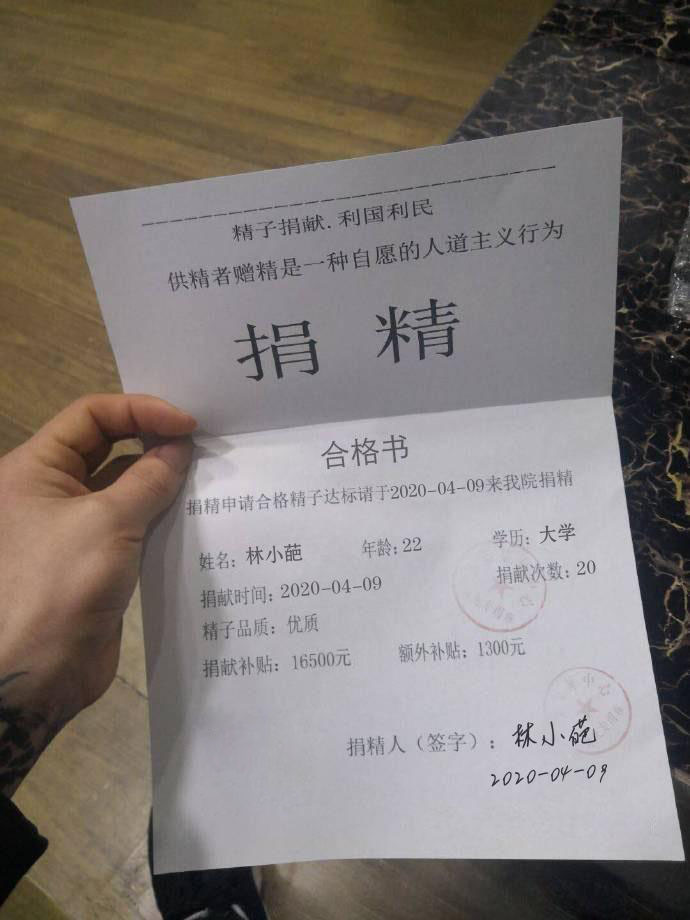 精子捐献.利国利民
供精者赠精是一种自愿的人道主义行为
捐 精
合格书
捐精申请合格精子达标请于2020-04-09来我院捐精
姓名: 林小葩 年龄:22 学历: 大学
捐献时间: 2020-04-09 捐献次数: 20
精子品质: 优质
捐献补贴: 16500元 额外补贴: 1300元
捐精人（签字）: 林小葩
2020-04-09